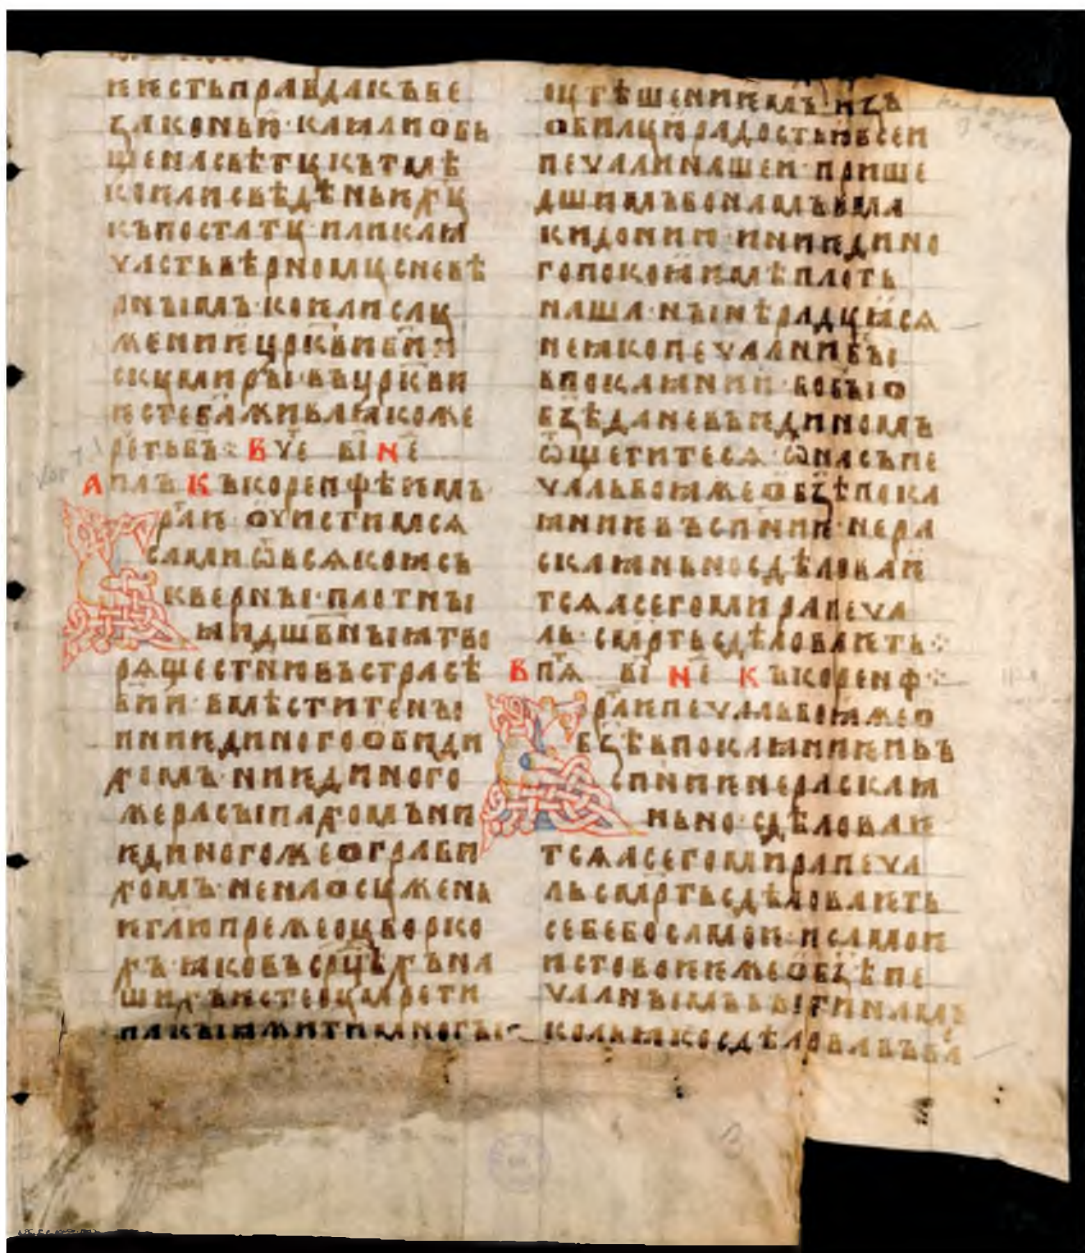 ѥ҅сть правда къ бе
ꙁаконьѭ · ка ѩли объ
щена свѣтꙋ къ тьмѣ
коꙗ ли съвѣдѣнь
къ по статꙋ · или каꙗ
часть вѣрномꙋ с невѣ
рнꙑмь · коѥ ли слꙋ
жениѥ цр҃кви б҃иꙗ
скꙋмирꙑ · въ црк҃ви
ѥсте б҃а жива ꙗкоже
ре · В чⷭ҇е ві҃ не
ап҃лъ къ коренфѣѥмъ
раⷮѥ ѹистимъся
сами ѿ всякоꙗ скъ
квернꙑ · плотнꙑ
ꙗ и дш҃внꙑꙗ тво
ряще ст҃ню въ страсѣ
б҃ии · вмѣстите нꙑ
ни ѥдиного обиди
хомъ · ни ѥдиного
же расꙑпахомъ ни
ѥдиного же ограби
хомъ · не на осꙋжень
ѥ гл҃ю преже ꙋбо рко
хъ · ꙗко въ срⷣцѣхъ на
шихъ ѥсте ꙋмрети
пакꙑ и жити · многꙑ
ꙋтѣшениѥмь · иꙁъ
обилꙋю радостью въ всеи
печали нашеи · прише
дшимъ бо намъ въ ма
кидонию · ни ѥдино
го покоꙗ имѣ плоть
наша · нꙑнѣ радꙋюся
не ꙗко печални бꙑ
в покаꙗнии · по б҃ꙁѣ
да не въ ѥдиномь
ѿщетитеся ѿ насъ пе
чаль бо ꙗже о б҃ꙁѣ пока
ꙗниѥ въ сп҃ниѥ · нера
скаꙗньно сдѣловаѥ
тся а сего мира печа
ль · смрть сдѣловаѥть
В пⷮя ві҃ не къ коренф
раⷮѥ печаль бо ꙗже о
б҃ꙁѣ в покаꙗниѥ въ
сп҃ниѥ нераскаꙗ
ньно · сдѣловаѥ
тся а сего мира печа
ль смрть сдѣловаѥть
се бо само
ѥсто во ѥже о б҃ꙁѣ пе
чалнꙑмъ бꙑти намъ
колько сдѣлова въ ва